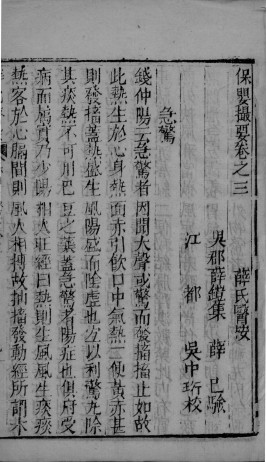 保嬰撮要卷之三
薛氏醫按
吳郡薛鎧集 薛己驗
江都 吳中珩校
急驚
錢仲陽云急驚者因聞大聲或驚而發搐搐止如故
此熱生於心身熱面赤引飲口中氣熱二便黃赤甚
則發搐蓋熱盛生風陽盛而陰虛也宜以利驚丸除
其痰熱不可用巴豆之藥蓋急驚者陽症也俱府受
病而屬實乃少陽相火旺經曰熱則生風風生痰痰
熱客於心膈間則風火相搏故抽搐發動經所謂木